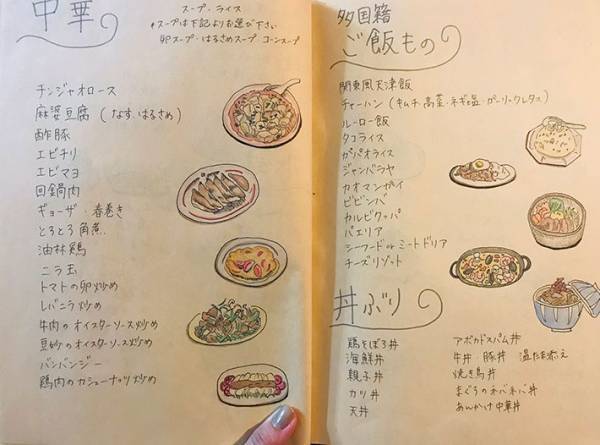 中華
スープ・ライス
*スープは下記よりお選び下さい
卵スープ・はるさめスープ コーンスープ
チンジャオロース
麻婆豆腐 (なす・はるさめ)
酢豚
エビチリ
エビマヨ
回鍋肉
ギョーザ・春巻き
とろとろ角煮
油林鶏
ニラ玉
トマトの卵炒め
レバニラ炒め
牛肉のオイスターソース炒め
豆苗のオイスターソース炒め
バンバンジー
鶏肉のカシューナッツ炒め
多国籍
ご飯もの
関東風天津飯
チャーハン (キムチ・高菜・ネギ塩・ガーリックレタス)
ルーロー飯
タコライス
ガパオライス
ジャンバラヤ
カオマンガイ
ビビンバ
カルビクッパ
パエリア
シーフード or ミートドリア
チーズリゾット
丼ぶり
鶏そぼろ丼
海鮮丼
親子丼
カツ丼
天丼
アボカドスパム丼
牛丼 豚丼 温たま添え
焼き鳥丼
まぐろのネバネバ丼
あんかけ中華丼